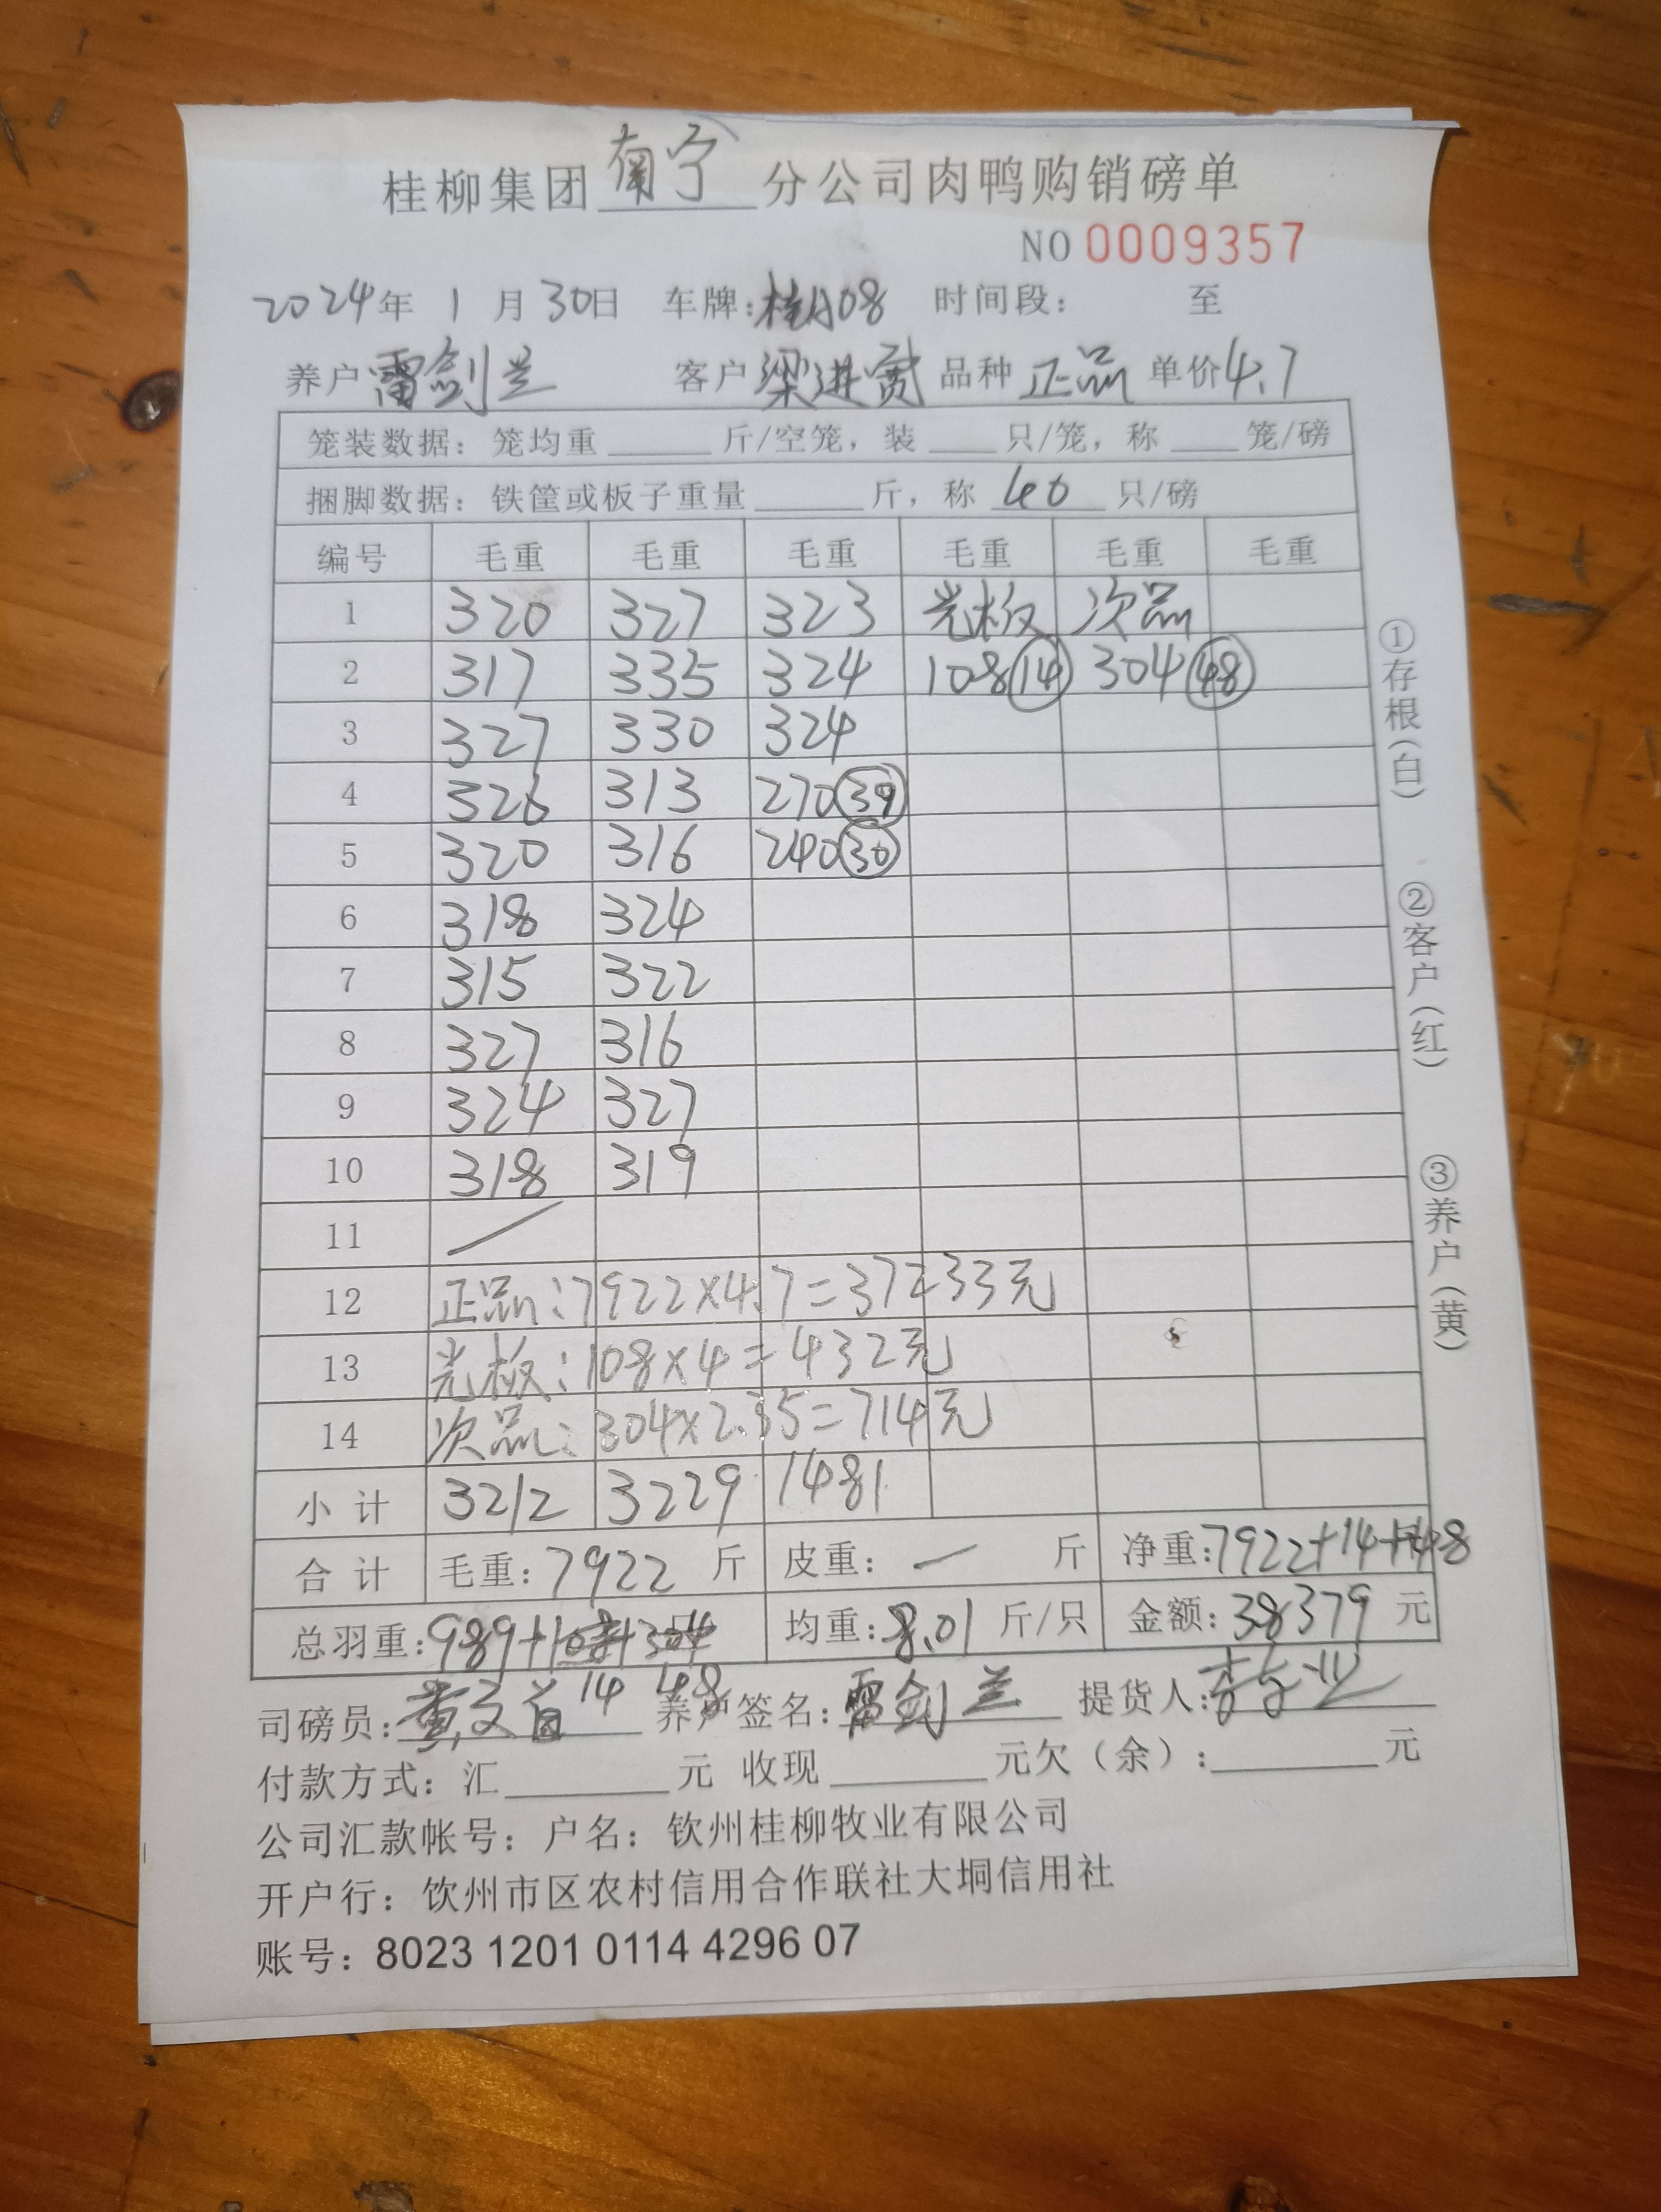 桂柳集团 南宁 分公司肉鸭购销磅单
NO 0009357
2024年 1 月 30日 车牌:桂A08 时间段: 至
养户 雷剑兰 客户 梁进宽 品种 正品 单价4.7
笼装数据: 笼均重 斤/空笼, 装 只/笼, 称 笼/磅
捆脚数据: 铁筐或板子重量 斤, 称 40 只/磅
编号 毛重 毛重 毛重 毛重 毛重 毛重
1 320 327 323 光板 次品
2 317 335 324 108 14 304 48
3 327 330 324
4 326 313 270 39
5 320 316 240 30
6 318 324
7 315 322
8 327 316
9 324 327
10 318 319
11 /
12 正品:7922×4.7=37233元
13 光板:108×4=432元
14 次品:304×2.35=714元
小计 3212 3229 1481
合计 毛重:7922 斤 皮重: — 斤 净重:7922+14+48
总羽重:989+108+304 均重:8.01 斤/只 金额:38379 元
14 48
司磅员: 养户签名:雷剑兰 提货人:
付款方式: 汇 元 收现 元欠(余): 元
公司汇款帐号: 户名: 钦州桂柳牧业有限公司
开户行: 饮州市区农村信用合作联社大垌信用社
账号: 8023 1201 0114 4296 07
①存根(白) ②客户(红) ③养户(黄)